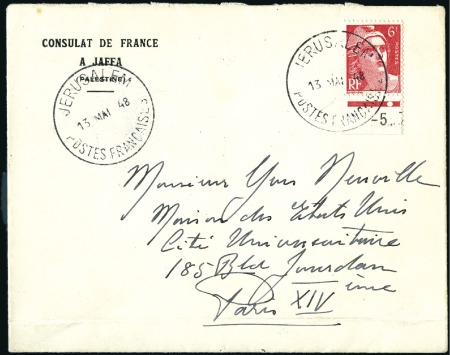 CONSULAT DE FRANCE
A JAFFA
(PALESTINE)
JERUSALEM
13 MAI 48
POSTES FRANCAISES
JERUSALEM
13 MAI 48
POSTES FRANCAISES
6F
POSTES
RF
-5
Monsieur Yves Neuville
Maison des Etats Unis
Cité Universitaire
185 Bld Jourdan
Paris XIV ème